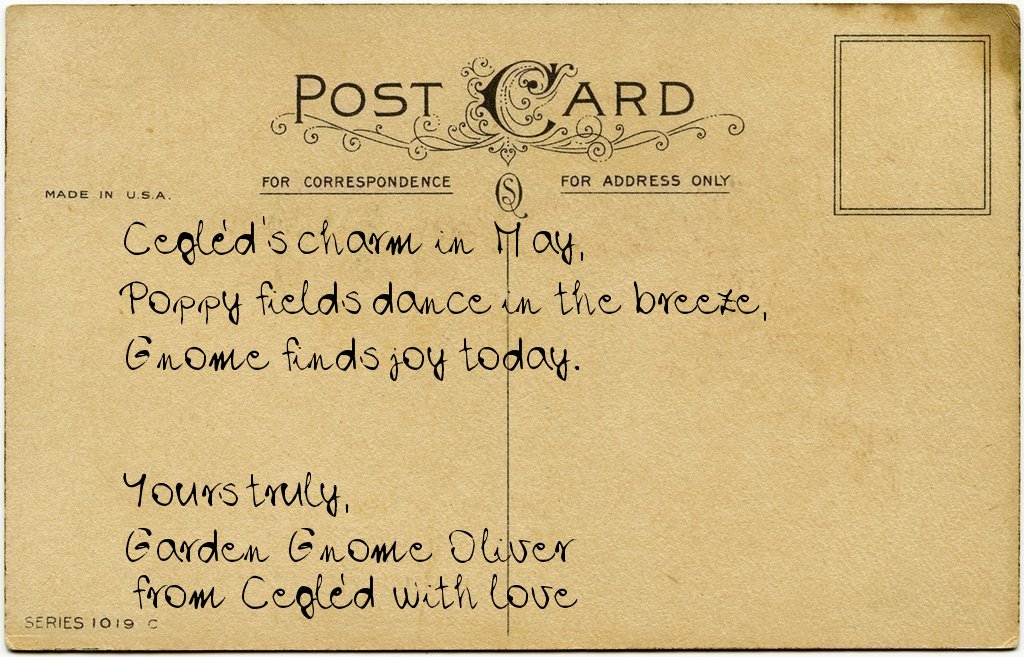 POST CARD
FOR CORRESPONDENCE
FOR ADDRESS ONLY
MADE IN U.S.A.
SQ
Cegléd's charm in May,
Poppy fields dance in the breeze,
Gnome finds joy today.
Yours truly,
Garden Gnome Oliver
from Cegléd with love
SERIES 1019 C